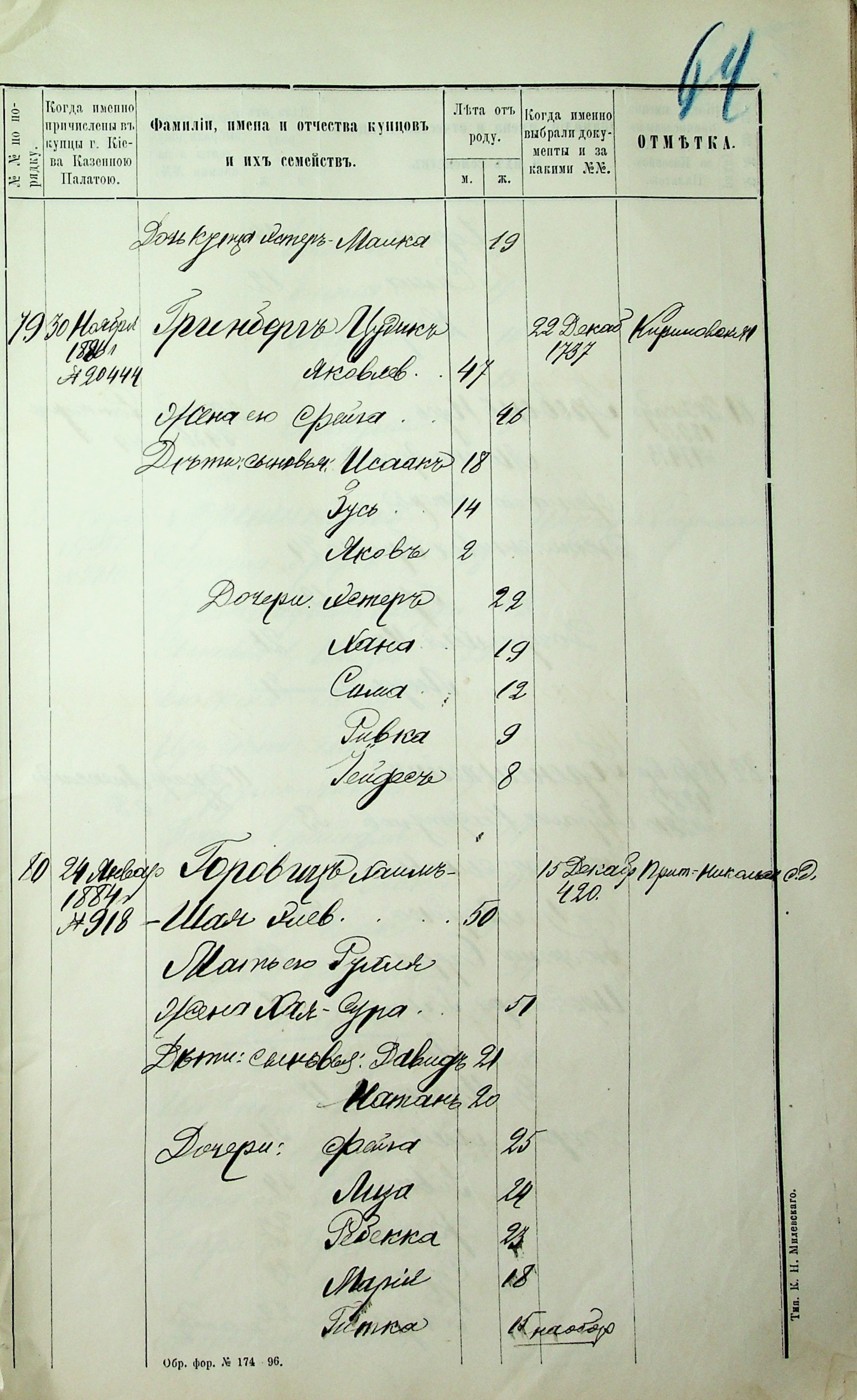 64
№№ по по-
рядку.
Когда именно
причислены въ
купцы г. Кіе-
ва Казенною
Палатою.
Фамиліи, имена и отчества купцовъ
и ихъ семействъ.
Лѣта отъ
роду.
м. ж.
Когда именно
выбрали доку-
менты и за
какими №№.
ОТМѢТКА.
Дочь купца Эстеръ-Малка 19
79 30 Ноября Гринбергъ Цудикъ 22 Декаб Кириловская
№ 20444 Яковлев. 47 1737
Жена его Фейга 46
Дѣти: сыновья: Исаакъ 18
Зусь 14
Яковъ 2
Дочери: Эстеръ 22
Хана 19
Сима 12
Ривка 9
Нейфесъ 8
80 24 Январ Горовицъ Хаимъ- 15 Декаб Прит-Никольск
1884 г 420.
№ 918 -Шая 50
Мать его
Жена Хая-Сура 51
Дѣти: сыновья: Давидъ 21
Натанъ 20
Дочери: Фейга 25
Лиза 24
Ребекка 23
Марія 18
Гитка 15 наобор
Обр. фор. № 174—96.
Тип. К. Н. Милевскаго.